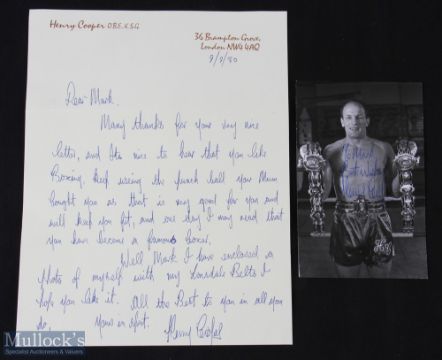 Henry Cooper OBE. K.S.G
36 Brampton Grove,
London NW4 4AQ
Dear Mark.
Many thanks for your very nice
letter, and its nice to hear that you like
Boxing. keep using the punch ball your Mum
bought you as that is very good for you and
will keep you fit, and one day I may read that
you have become a famous boxer.
Well Mark I have enclosed a
photo of myself with my Lonsdale Belts I
hope you like it. All the Best to you in all you
do. Yours in Sport. Henry Cooper
To Mark
Best Wishes
Henry Cooper
Mullock's
Specialist Auctioneers & Valuers